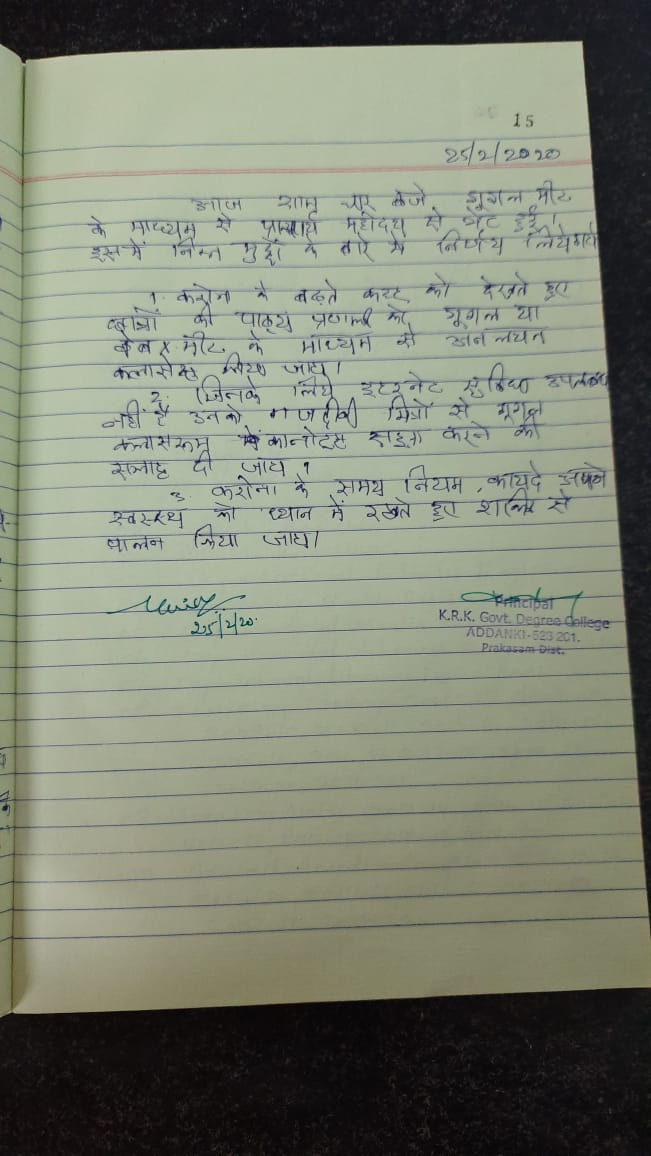 15
25/2/2020
आज शाम चार बजे गूगल मीट
के माध्यम से प्राचार्य महोदय से भेंट हुई।
इसमें निम्न मुद्दों के बारे में निर्णय लिये गये
1. करोना के बढ़ते कष्ट को देखते हुए
छात्रों की पाठ्य प्रणाली को गूगल या
वेबx मीट के माध्यम से
क्लासेस लिया जाय।
2. जिनके लिये इंटरनेट सुविधा उपलब्ध
नहीं है उनको नजदीकी मित्रों से गूगल
क्लासरूम करने की
सलाह दी जाय।
3. करोना के समय नियम, कायदे अपने
स्वस्थ्य को ध्यान में रखते हुए से
पालन किया जाय।
25/2/20.
Principal
K.R.K. Govt. Degree College
ADDANKI-523 201.
Prakasam Dist.